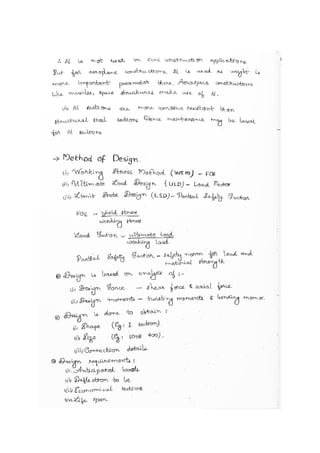 ∴ Al is not used in civil construction applications.
But for aeroplane constructions, Al is used as weight is
more important parameter there. Aerospace constructions
like missiles, space structures make use of Al.
(ii) Al sections are more corrosive resistant than
structural steel sections. Hence maintenance may be lower
for Al sections
→ Method of Design.
(i) Working Stress Method (WSM) - FOS
(ii) Ultimate Load Design (ULD) - Load Factor
(iii) Limit State Design (LSD) - Partial Safety Factor
FOS → yield stress
working stress
Load Factor → ultimate load
working load
Partial Safety Factor - safety norm for load and
material strength
Design is based on analysis of :-
(i) Design Force → shear force & axial force.
(ii) Design moments - twisting moments & bending moment.
Design is done to obtain :
(i) Shape (Eg: I section).
(ii) Size (Eg: ISMB 400).
(iii) Connection details
Design requirements :
(i) Anticipated loads
(ii) Deflection to be
(iii) Economical sections
(iv) Life span.